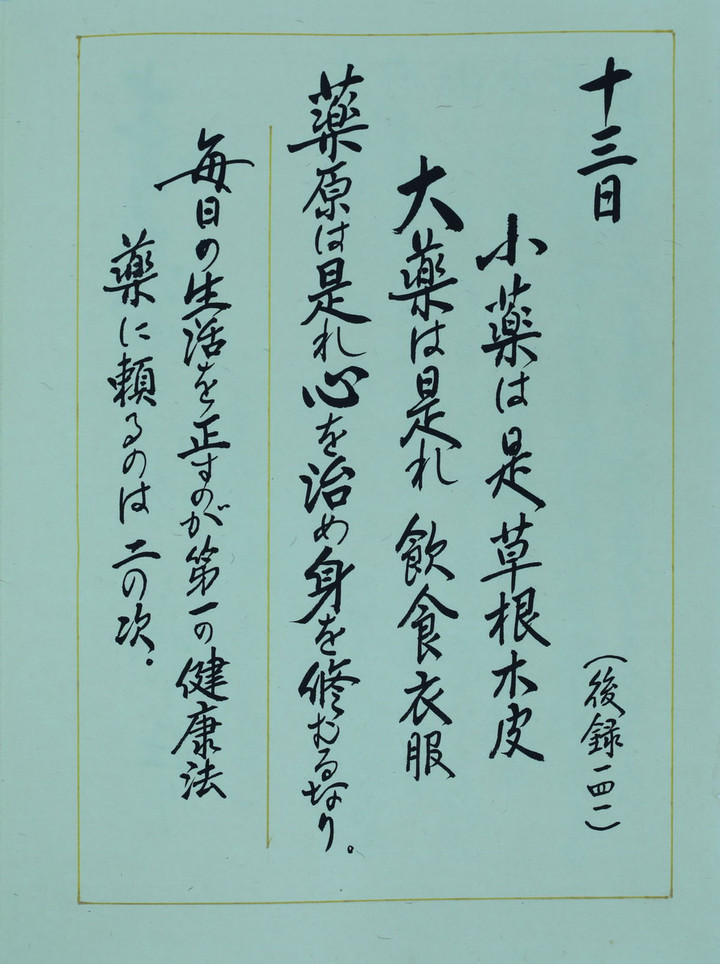 十三日
(後録一四一)
小薬は是草根木皮
大薬は是れ飲食衣服
薬原は是れ心を治め身を修むるなり。
毎日の生活を正すのが第一の健康法
薬に頼るのは二の次。